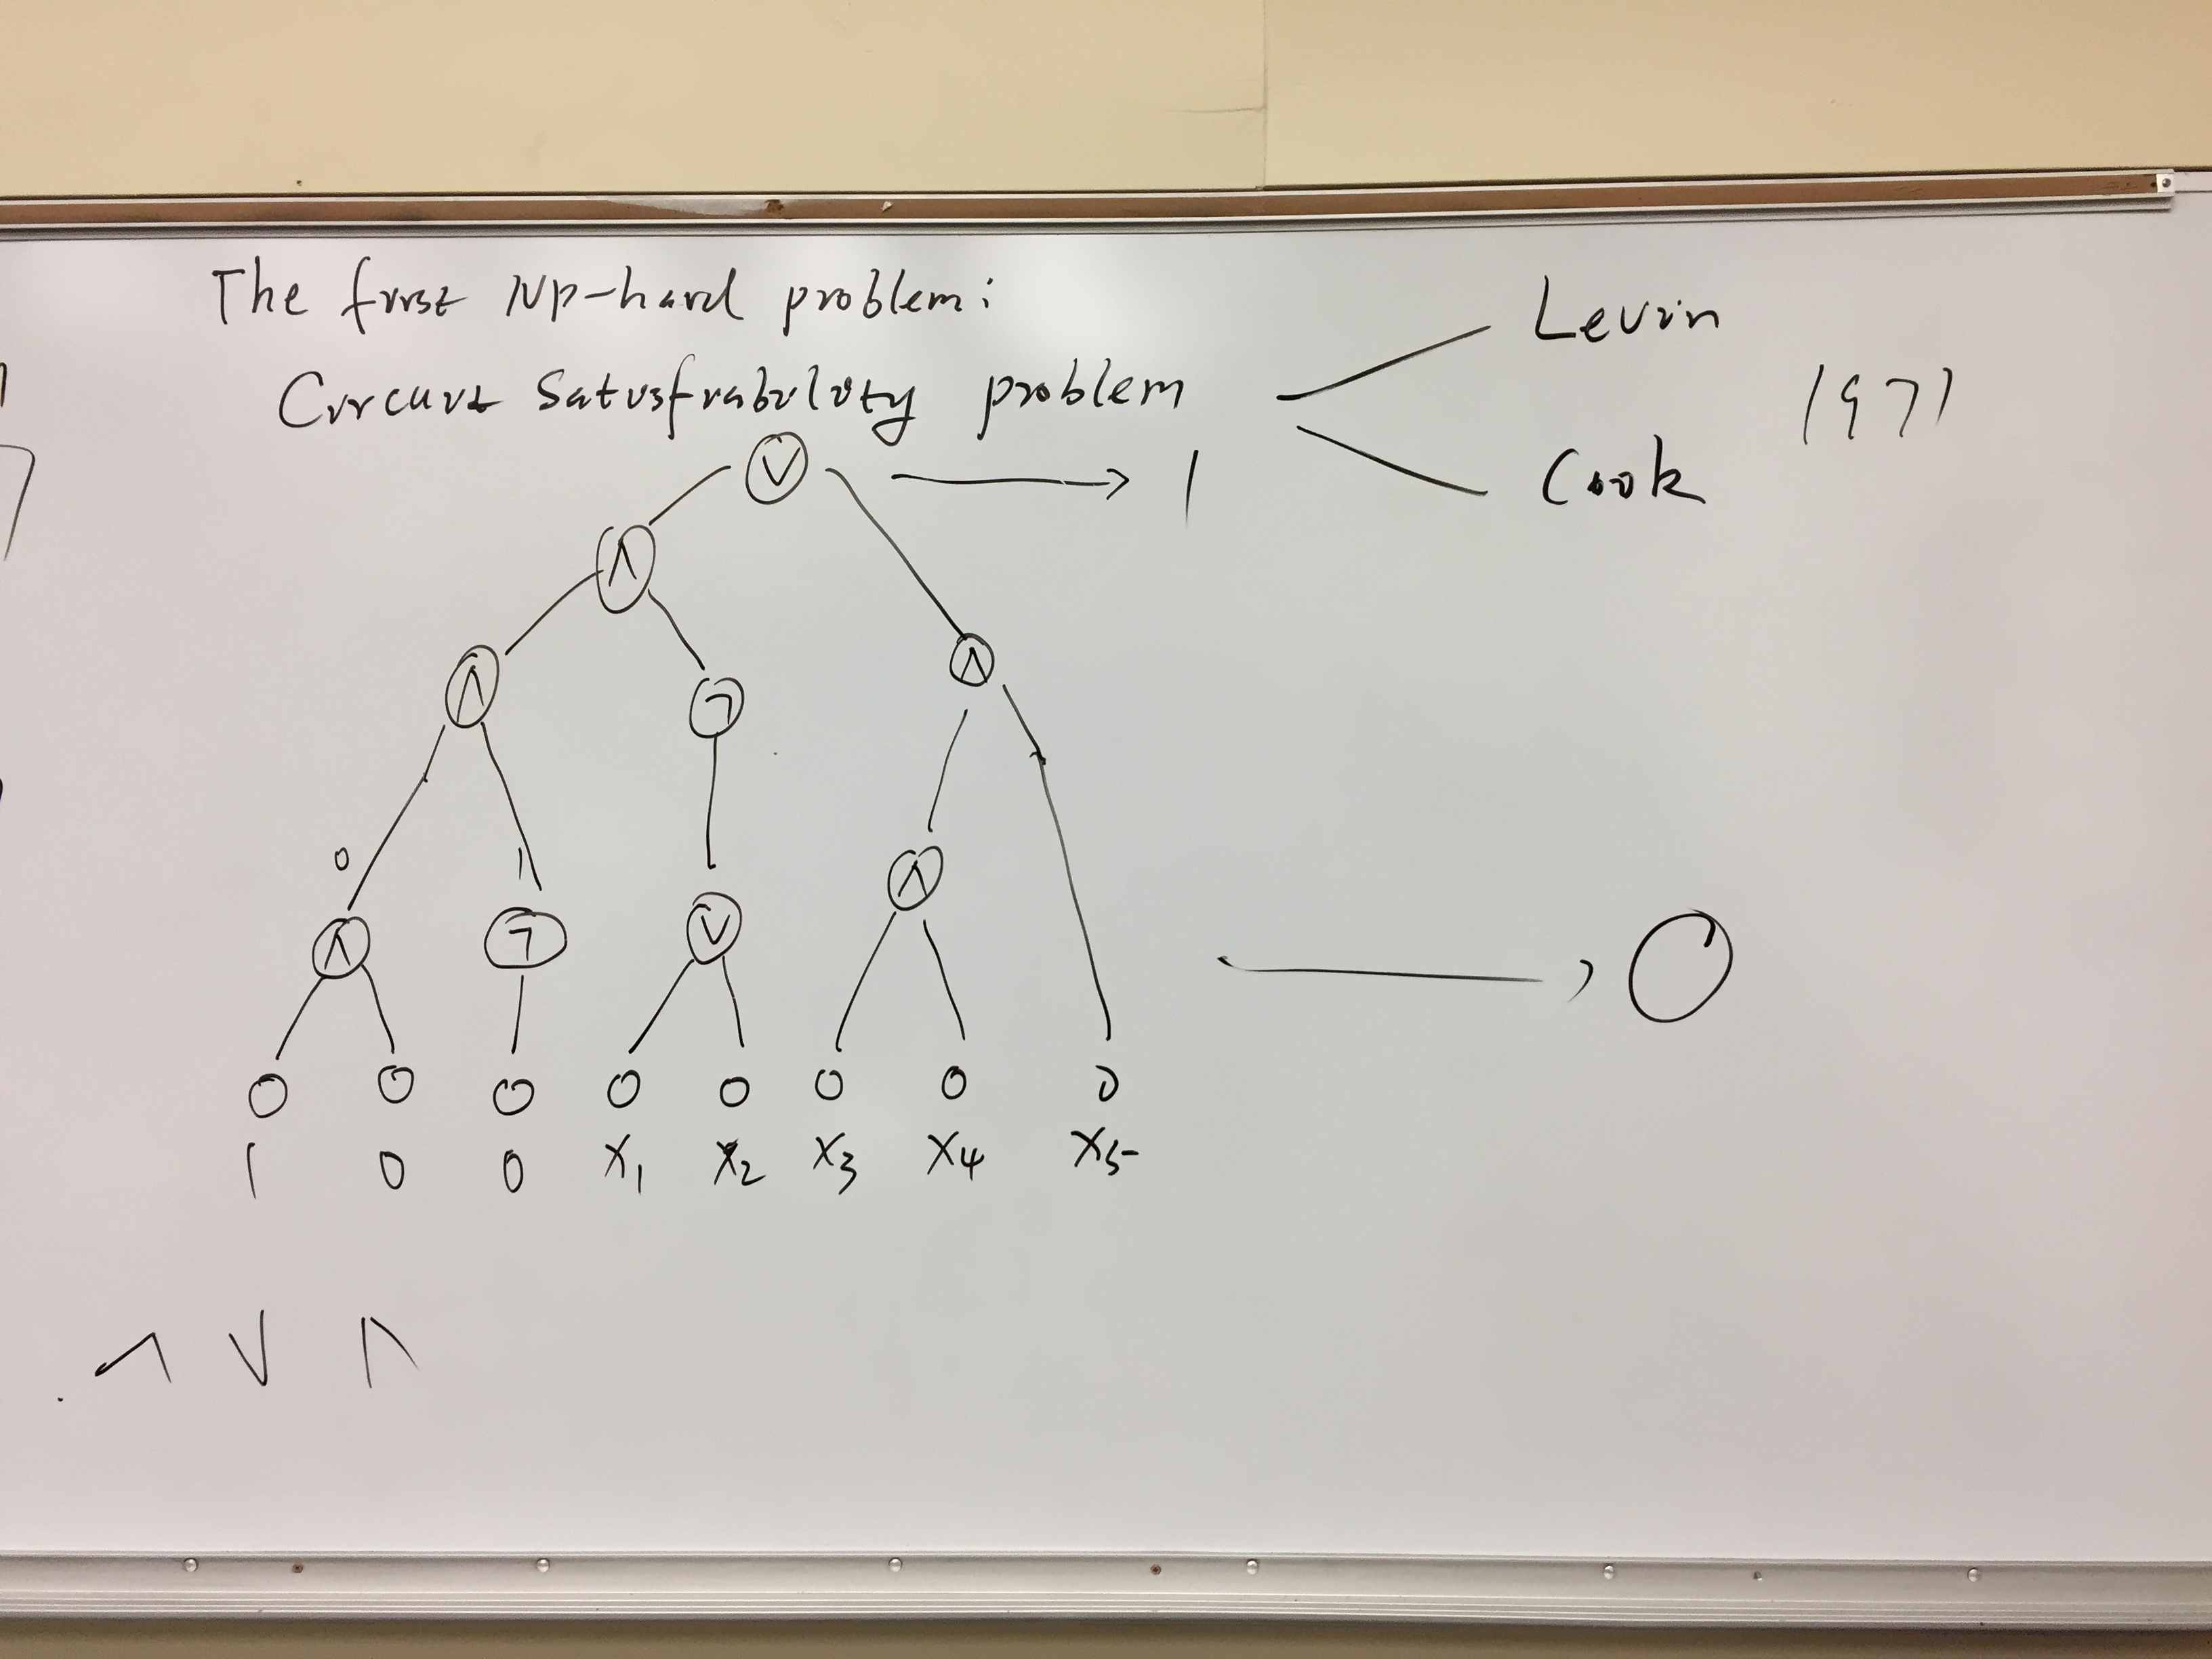 The first NP-hard problem:
Circuit Satisfiability problem
Levin
1971
Cook
∨ → 1
∧
∧ ¬ ∧
0 1
∧
∧ ¬ ∨
→ O
0 0 0 0 0 0 0 0
1 0 0 x1 x2 x3 x4 x5
∧ ∨ ∧